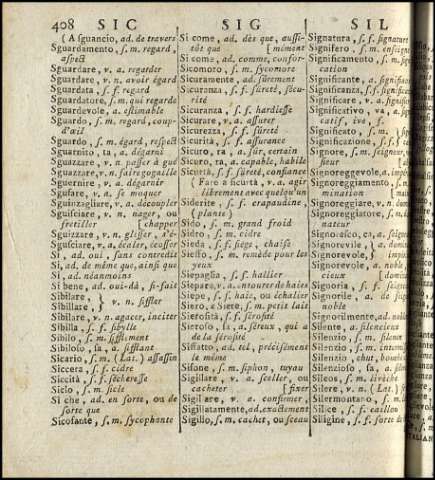 408 SIC SIG SIL
(A sguancio, ad. de travers
Sguardamento, s. m. regard,
aspect
Sguardare, v. a. regarder
Sguardare, v. n. avoir égard
Sguardata, s. f. regard
Sguardatore, s. m. qui regarde
Sguardevole, a. estimable
Sguardo, s. m. regard, coup-
d'œil
Sguardo, s. m. égard, respect
Sguarnito, ta, a. dégarni
Sguazzare, v. n. passer à gué
Sguazzare, v. n. faire gogaille
Sguernire, v. a. dégarnir
Sgufare, v. a. se moquer
Sguinzagliare, v. a. découpler
Sguisciare, v. n. nager, ou
fretiller [chapper
Sguizzare, v. n. glisser, s'é-
Sgusciare, v. a. écaler, écosser
Sì, ad. oui, sans contredit
Si, ad. de même que, ainsi que
Sì, ad. néanmoins
Si bene, ad. oui-dà, si-fait
Sibilare,
Sibillare, } v. n. siffler
Sibillare, v. n. agacer, inciter
Sibilla, s. f. sibylle
Sibilo, s. m. sifflement
Sibiloso, sa, a. sifflant
Sicario, s. m. (Lat.) assassin
Siccera, s. f. cidre
Siccità, s. f. sécheresse
Siclo, s. m. sicle
Si che, ad. en sorte, ou de
sorte que
Sicofante, s. m. sycophante
Si come, ad. dès que, aussi-
tôt que [mément
Si come, ad. comme, confor-
Sicomoro, s. m. sycomore
Sicuramente, ad. sûrement
Sicuranza, s. f. sûreté, sécu-
rité
Sicuranza, s. f. hardiesse
Sicurare, v. a. assurer
Sicurezza, s. f. sûreté
Sicurità, s. f. assurance
Sicuro, ra, a. sûr, certain
Sicuro, ra, a. capable, habile
Sicurtà, s. f. sûreté, confiance
(Fare a sicurtà, v. a. agir
librement avec quelqu'un
Siderite, s. f. crapaudine,
(plante)
Sido, s. m. grand froid
Sidro, s. m. cidre
Sieda, s. f. siége, chaise
Sieffo, s. m. remède pour les
yeux
Siepaglia, s. f. hallier
Siepare, v. a. entourer de haies
Siepe, s. f. haie, ou échalier
Siero, e Siere, s. m. petit lait
Sierosità, s. f. sérosité
Sieroso, sa, a. séreux, qui a
de la sérosité
Siffatto, ad. tel, précisément
le même
Sifone, s. m. siphon, tuyau
Sigillare, v. a. sceller, ou
cacheter [fixer
Sigillare, v. a. confirmer,
Sigillatamente, ad. exactement
Sigillo, s. m. cachet, ou sceau
Signatura, s. f. signature
Signifero, s. m. enseigne
Significamento, s. m. signifi-
cation
Significante, a. significatif
Significanza, s. f. signif
Significare, v. a. signifier
Significativo, va, a.
catif, ive
Significato, s. m.
Significazione, s. f.
Signore, s. m. seigneur,
sieur
Signoreggevole, a. impér
Signoreggiamento, s. m.
mination
Signoreggiare, v. a. maît
Signoreggiatore, s. m.
nateur
Signoresco, ca, a.
Signorevile,
Signorevole, } a.
Signorevole, a. noble
cieux
Signoria, s. f.
Signorile, a. de
noble
Signorilmente, ad. noble
Silente, a. silencieux
Silenzio, s. m. silence
Silenzio, s. m.
Silenzio, chut,
Silenziofo, sa, a.
Sileos, s. m.
Silere, v. n. (Lat.)
Silermontano, s. m.
Silice, s. f. caillou
Siligine, s. f. sorte de